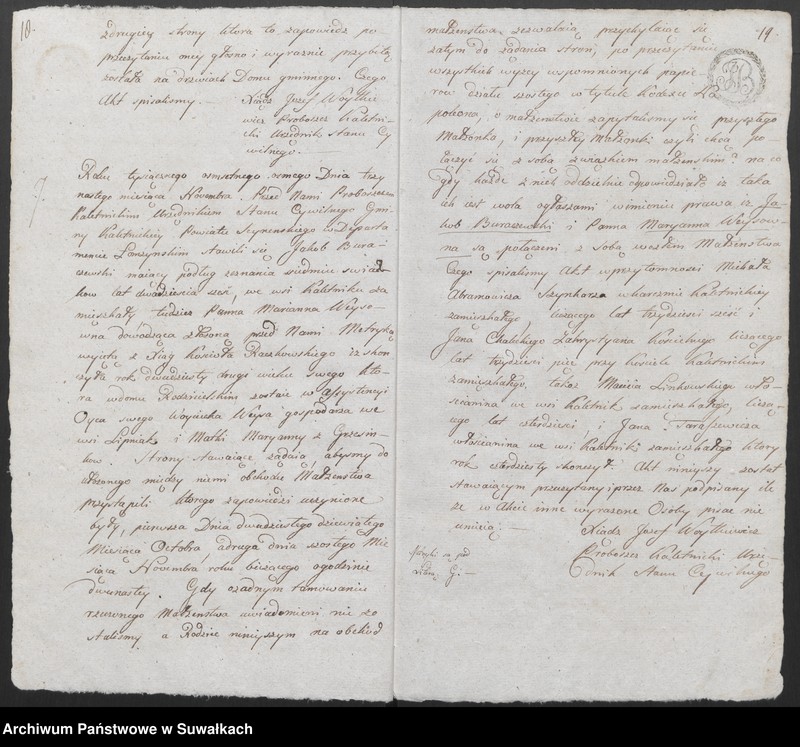 18.
zdrugiey strony ktora to zapowiedz po
przeczytaniu oney głosno i wyraznie przybitą
została na drzwiach Domu gminnego. Czego
Akt spisalismy. Xiądz Jozef Woytkie
wicz Proboszcz Kaletni-
cki Urzędnik Stanu Cy
wilnego.
Roku tysiącznego osmsetnego osmego Dnia trzy
nastego miesiąca Novembra. Przed Nami Proboszczem
Kaletnickim Urzędnikiem Stanu Cywilnego Gmi-
ny Kaletnickiey Powiatu Seynenskiego w Departa-
mencie Łomzynskim stawili się Jakob Bura-
czewski maiący podług zeznania siedmiu swiad-
kow lat dwadziescia szesć, we wsi Kaletniku za
mieszkały tudziesz Panna Marianna Weyso-
wna dowodząca złozoną przed Nami Metryką
wyięta z Xiąg Koscioła Raczkowskiego iz skon-
czyła rok dwudziesty drugi wieku swego kto-
ra wdomu Rodzicielskim zostaie w assystencyi
Oyca swego Woyciecha Weysa gospodarza we
wsi Lipniak i Matki Maryanny z Grzesin-
kow. Strony stawaiące ządaią, abysmy do
ułozonego między niemi obchodu Małzenstwa
przystąpili ktorego zapowiedzi uczynione
były, pierwsza Dnia dwudziestego dziewiątego
Miesiąca Octobra a druga dnia szostego Mie-
siąca Novembra roku biezącego ogodzinie
dwunastey. Gdy ozadnym tamowaniu
rzeczonego Małzenstwa uwiadomieni nie zo
stalismy a Rodzice niniejszym na obchod
19.
małzenstwa zezwalaią, przychylaiąc się
zatym do ządania stron, po przeczytaniu
wszystkich wyzey wspomnionych papie-
row działu szostego w tytule Kodexu Na
poleona, o małzenstwie zapytalismy się przyszłego
Małzonka, i przyszłey Małzonki czyli chcą po-
łączyć się z sobą związkiem małzenskim? na co
gdy kazde z nich oddzielnie odpowiedziało iz taka
ich iest wola ogłaszamy wimieniu prawa iz Ja-
kob Buraczewski i Panna Maryanna Weysow-
na są połączeni z sobą węzłem Małzenstwa
Czego spisalismy Akt wprzytomnosci Michała
Abramowicza Szynkarza wkarczmie Kaletnickiey
zamieszkałego liczącego lat trzydziesci szesć i
Jana Chaleckiego Zakrystyana Koscielnego liczącego
lat trzydziesci pięc przy kosciele Kaletnickim
zamieszkałego, takoz Macieia Linkowskiego wło-
scianina we wsi Kaletnik zamieszkałego, liczą-
cego lat czterdziesci, i Jana Taraszewicza
włoscianina we wsi Kaletniki zamieszkałego ktory
rok czterdziesty skonczył. Akt niniejszy został
stawaiącym przeczytany i przez Nas podpisany ile
ze w Akcie inne wyrazone Osoby pisac nie
umieią.
Xiądz Jozef Woytkiewicz
Proboszcz Kaletnicki Urzę-
dnik Stanu Cywilnego
Archiwum Państwowe w Suwałkach